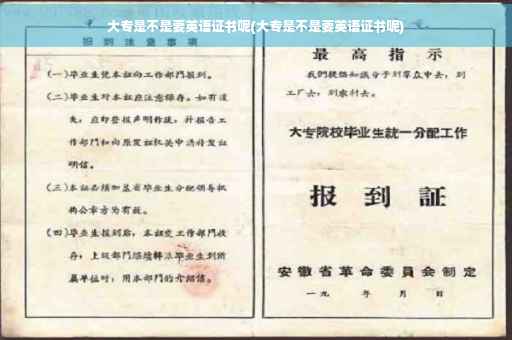 大专是不是要英语证书呢(大专是不是要英语证书呢)
报到注意事项
(一)毕业生凭本证向工作部门报到。
(二)毕业生对本证应注意保存。如有遗
失,应即登报声明作废,并报告工
作部门和向原发证机关申请补发证
明信。
(三)本证必须加盖省毕业生分配领导机
构公章方为有效。
(四)毕业生报到后,本证交工作部门收
存;上级部门
属单位时,用本部门的介绍信。
最高指示
我们提倡知识分子到群众中去,到
工厂去,到农村去。
大专院校毕业生统一分配工作
报到証
安徽省革命委員会制定
一九 年 月 日